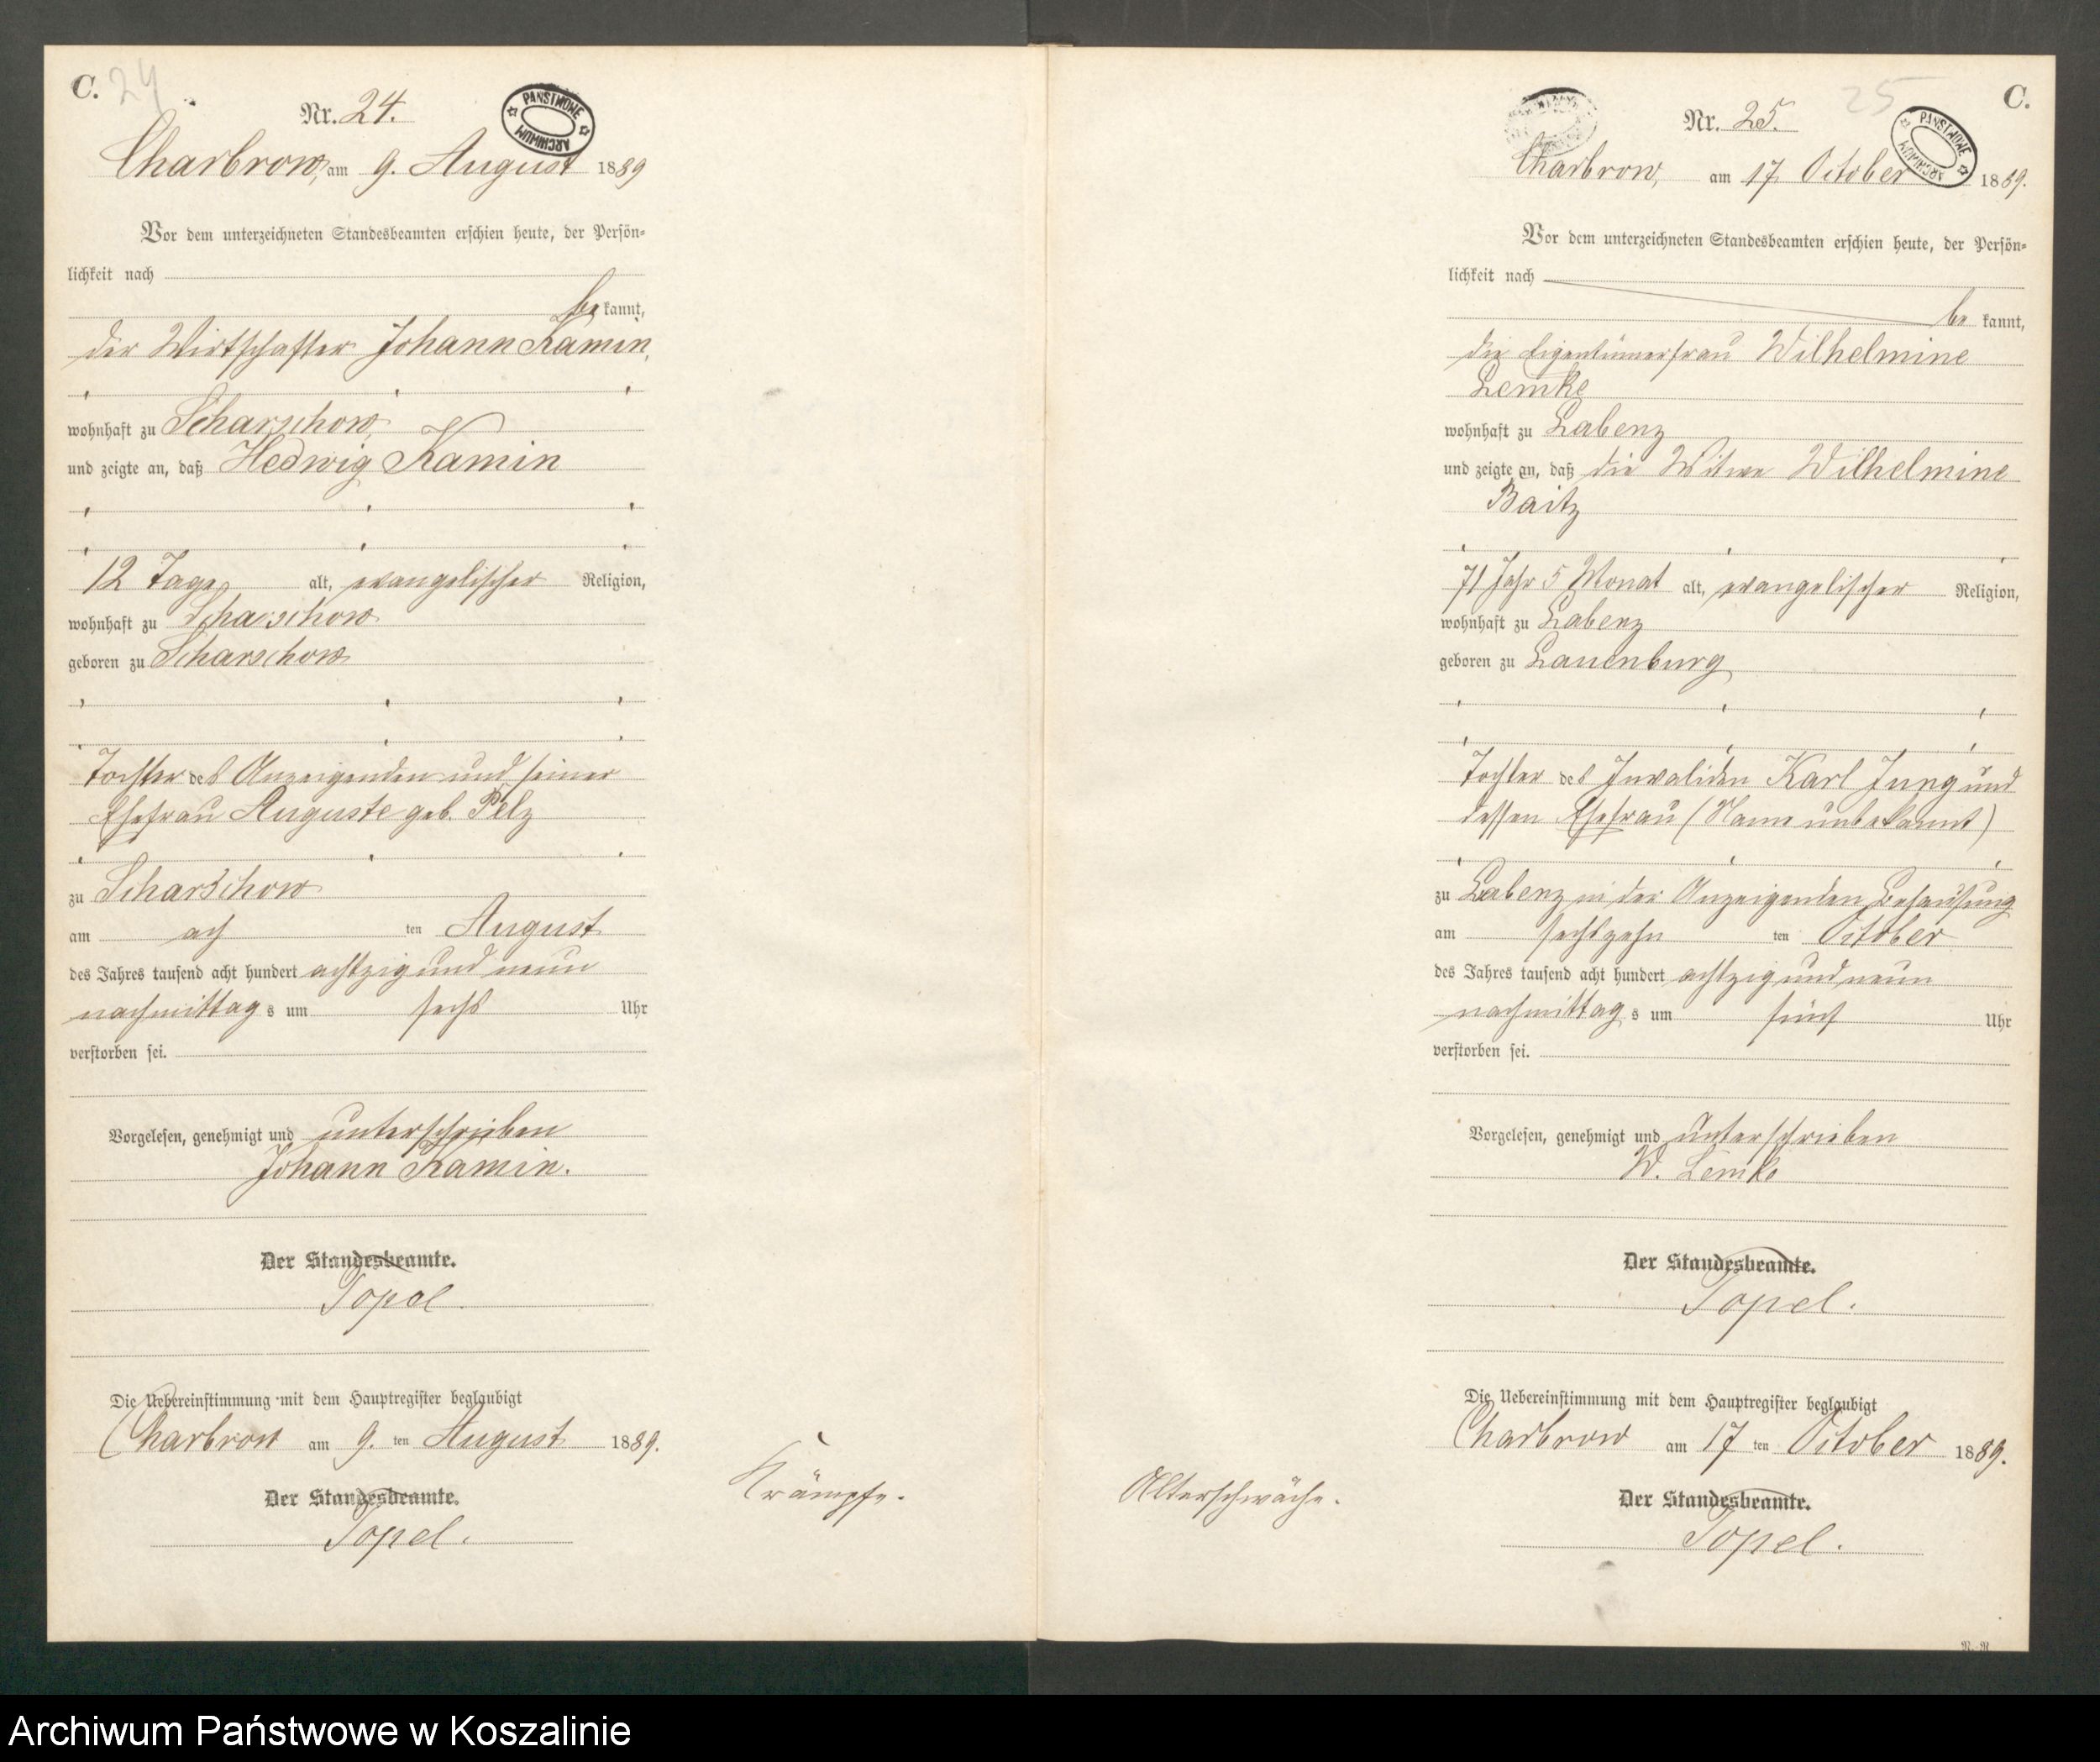 C. 24
Nr. 24.
PANSTWOWE ARCHIWUM
Charbrow, am 9. August 1889
Vor dem unterzeichneten Standesbeamten erschien heute, der Persön-
lichkeit nach
be kannt,
der Wirtschafter Johann Kamin,
wohnhaft zu Scharschow,
und zeigte an, daß Hedwig Kamin
12 Tage alt, evangelischer Religion,
wohnhaft zu Scharschow
geboren zu Scharschow
Tochter des Anzeigenden und seiner
Ehefrau Auguste geb. Pelz
zu Scharschow
am ach ten August
des Jahres tausend acht hundert achtzig und neun
nachmittag s um sechs Uhr
verstorben sei.
Vorgelesen, genehmigt und unterschrieben
Johann Kamin.
Der Standesbeamte.
Topel.
Die Uebereinstimmung mit dem Hauptregister beglaubigt
Charbrow am 9. ten August 1889.
Der Standesbeamte.
Topel.
Krämpfe.
25 C.
Nr. 25.
PANSTWOWE ARCHIWUM
Charbrow, am 17 October 1889.
Vor dem unterzeichneten Standesbeamten erschien heute, der Persön-
lichkeit nach
be kannt,
die Eigentümerfrau Wilhelmine
Lemke
wohnhaft zu Labenz
und zeigte an, daß die Witwe Wilhelmine
Baitz
71 Jahr 5 Monat alt, evangelischer Religion,
wohnhaft zu Labenz
geboren zu Lauenburg
Tochter des Invaliden Karl Jung und
dessen Ehefrau (Name unbekannt)
zu Labenz in der Anzeigenden Behausung
am sechszehn ten October
des Jahres tausend acht hundert achtzig und neun
nachmittag s um fünf Uhr
verstorben sei.
Vorgelesen, genehmigt und unterschrieben
W. Lemke
Der Standesbeamte.
Topel.
Die Uebereinstimmung mit dem Hauptregister beglaubigt
Charbrow am 17 ten October 1889.
Der Standesbeamte.
Topel.
Alterschwäche.
Archiwum Państwowe w Koszalinie